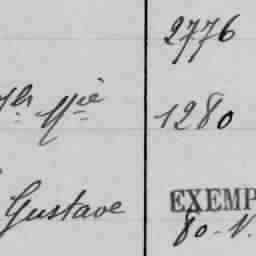 2776
1280
Gustave EXEMP
80-N.